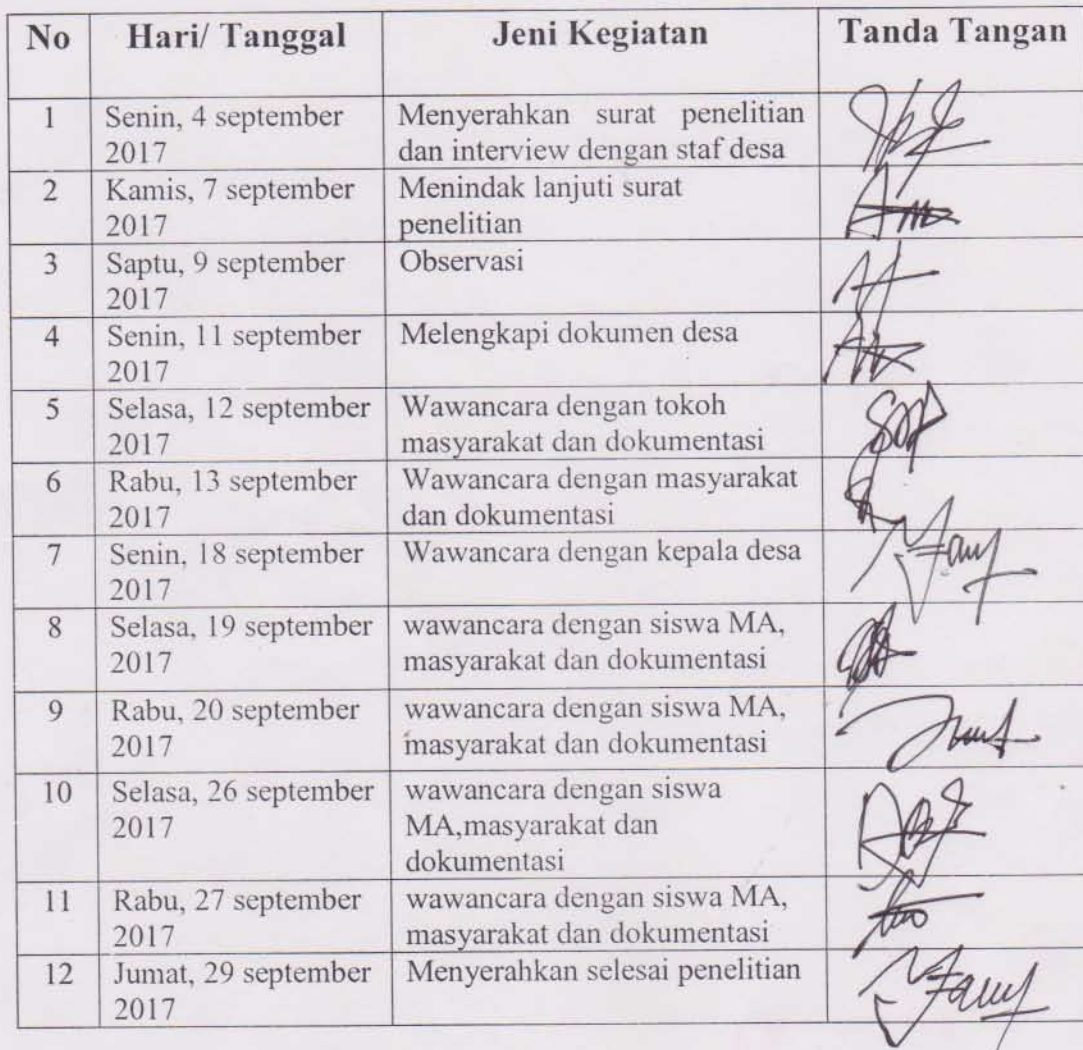 No Hari/ Tanggal Jeni Kegiatan Tanda Tangan
1 Senin, 4 september Menyerahkan surat penelitian
2017 dan interview dengan staf desa
2 Kamis, 7 september Menindak lanjuti surat
2017 penelitian
3 Saptu, 9 september Observasi
2017
4 Senin, 11 september Melengkapi dokumen desa
2017
5 Selasa, 12 september Wawancara dengan tokoh
2017 masyarakat dan dokumentasi
6 Rabu, 13 september Wawancara dengan masyarakat
2017 dan dokumentasi
7 Senin, 18 september Wawancara dengan kepala desa
2017
8 Selasa, 19 september wawancara dengan siswa MA,
2017 masyarakat dan dokumentasi
9 Rabu, 20 september wawancara dengan siswa MA,
2017 masyarakat dan dokumentasi
10 Selasa, 26 september wawancara dengan siswa
2017 MA,masyarakat dan
dokumentasi
11 Rabu, 27 september wawancara dengan siswa MA,
2017 masyarakat dan dokumentasi
12 Jumat, 29 september Menyerahkan selesai penelitian
2017